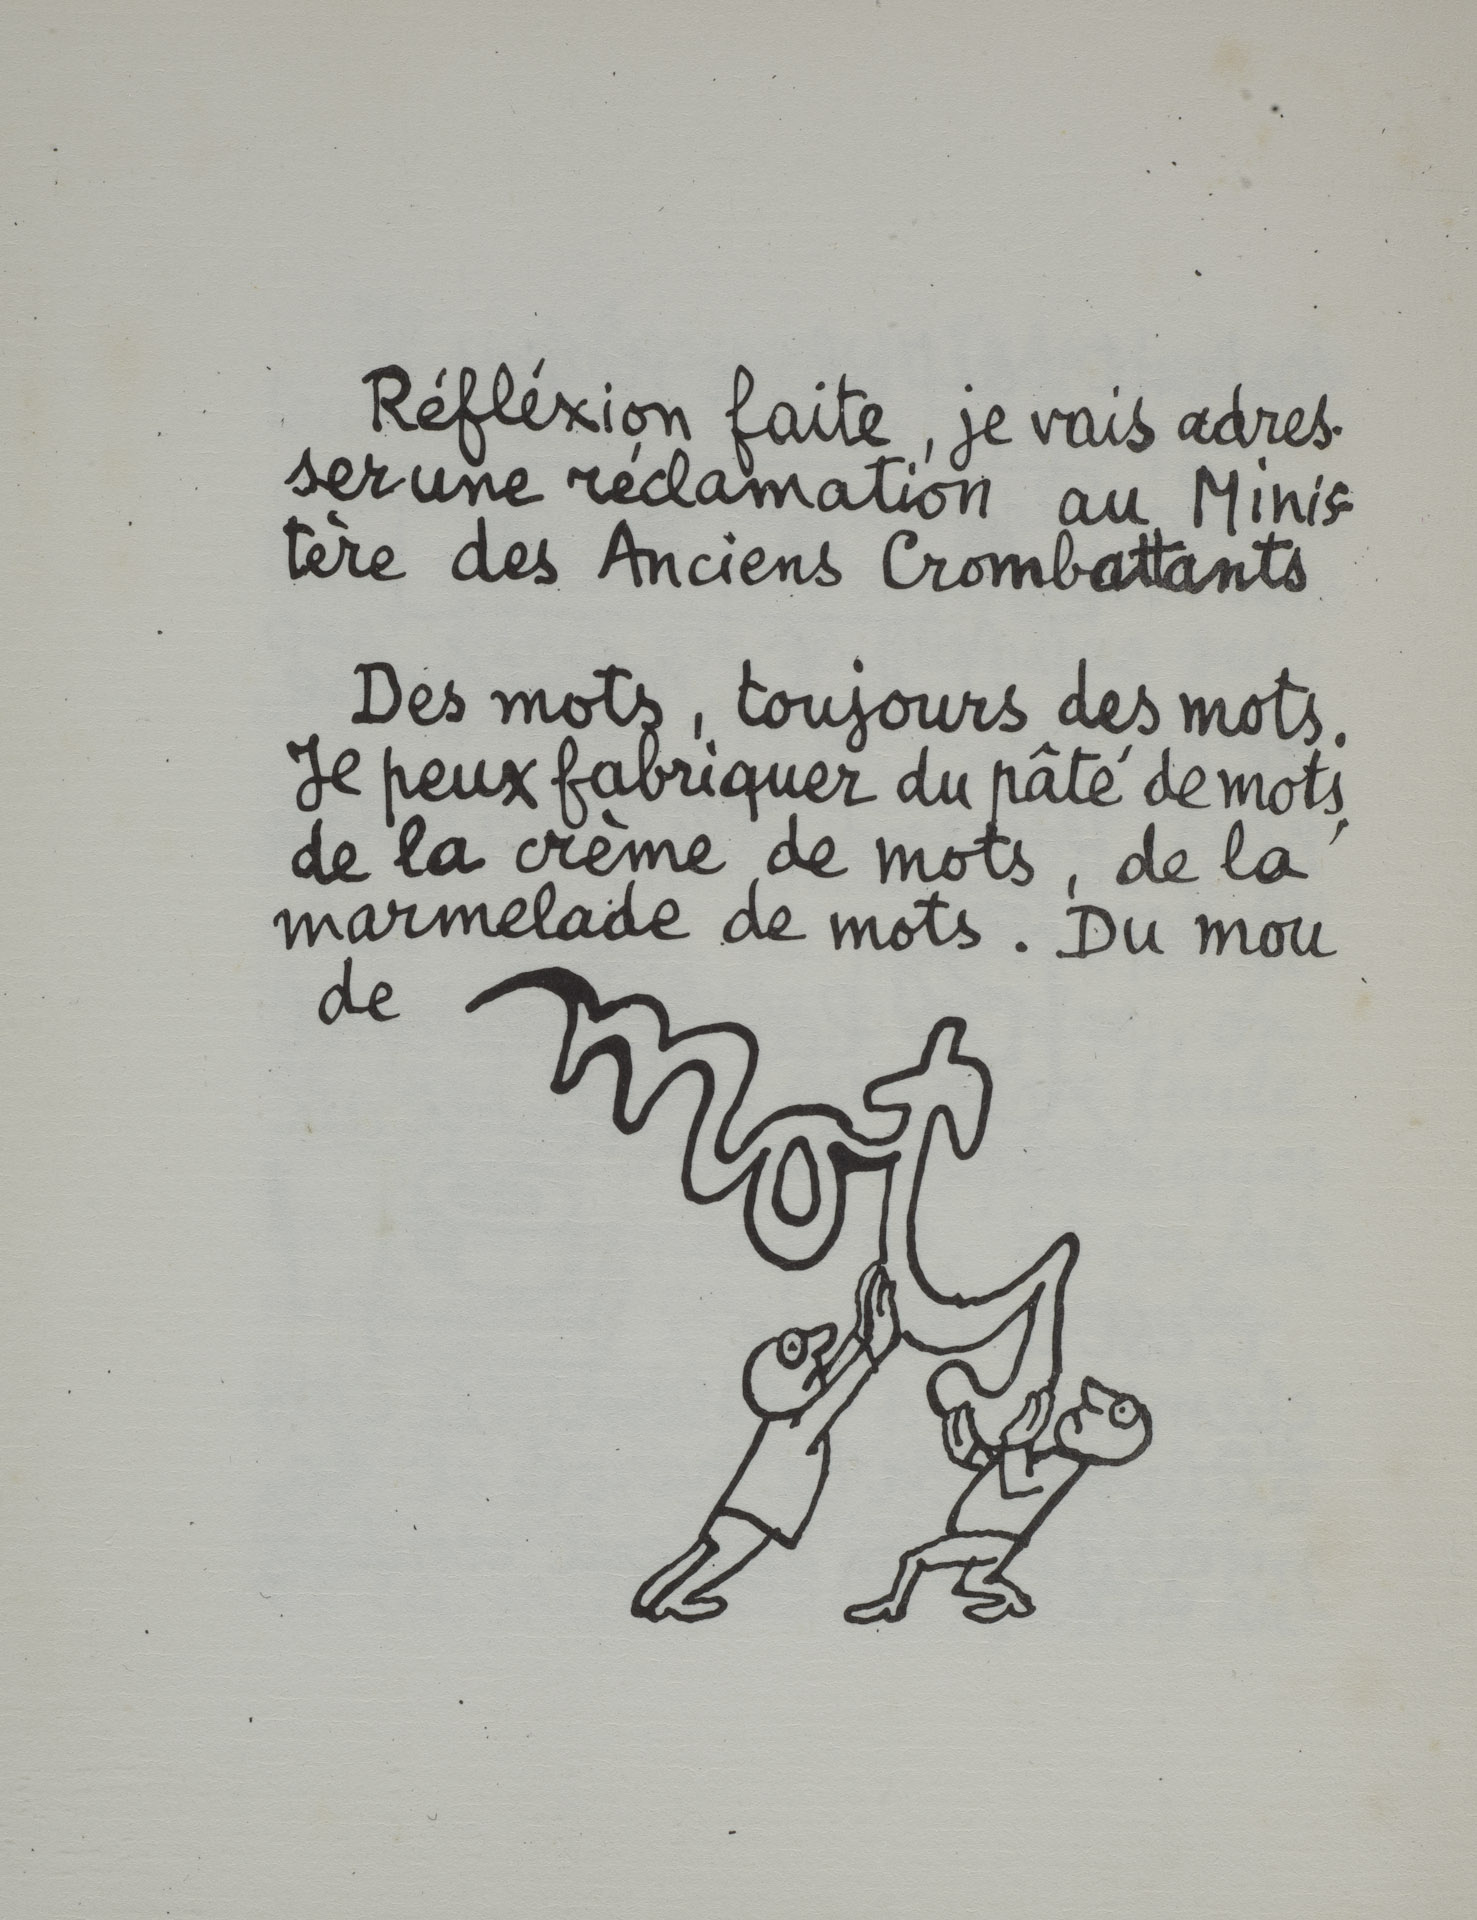 Réfléxion faite, je vais adres-
ser une réclamation au Minis-
tère des Anciens Crombattants
Des mots, toujours des mots.
Je peux fabriquer du pâté de mots,
de la crème de mots, de la
marmelade de mots. Du mou
de mot